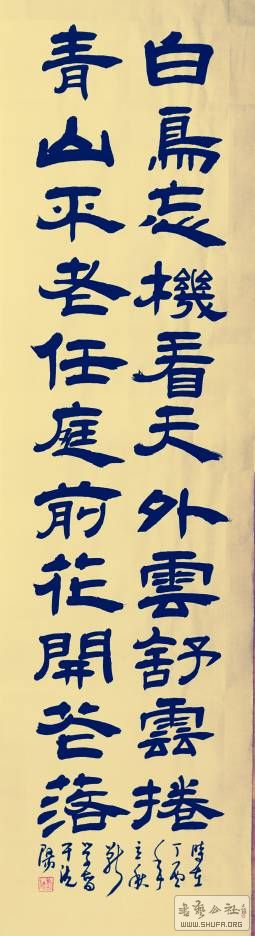 白鳥忘機看天外雲舒雲捲
青山不老任庭前花開花落
時在
丁酉
年
立秋
書藝公社
WWW.SHUFA.ORG